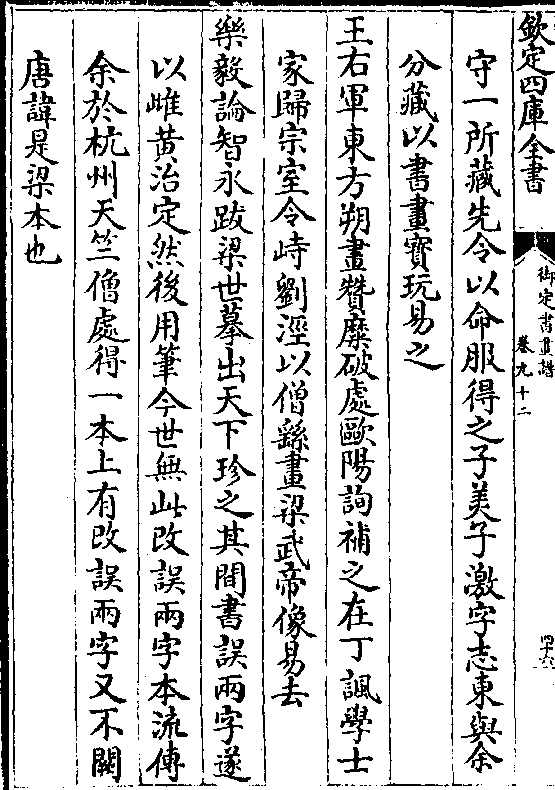 欽定四庫全書
御定書畫譜
卷九十二
四十六
守一所藏先令以命服得之子美子激字志東與余
分藏以書畫寶玩易之
王右軍東方朔畫贊糜破處歐陽詢補之在丁諷學士
家歸宗室令畤劉涇以僧繇畫梁武帝像易去
樂毅論智永跋梁世摹出天下珍之其間書誤兩字遂
以雌黄治定然後用筆今世無此改誤兩字本流傳
余於杭州天竺僧處得一本上有改誤兩字又不闕
唐諱是梁本也